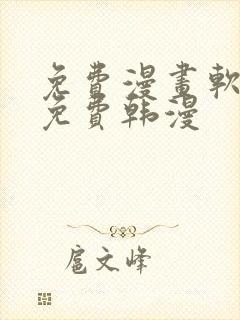 免費漫畫軟
免費韩漫
扈文峰